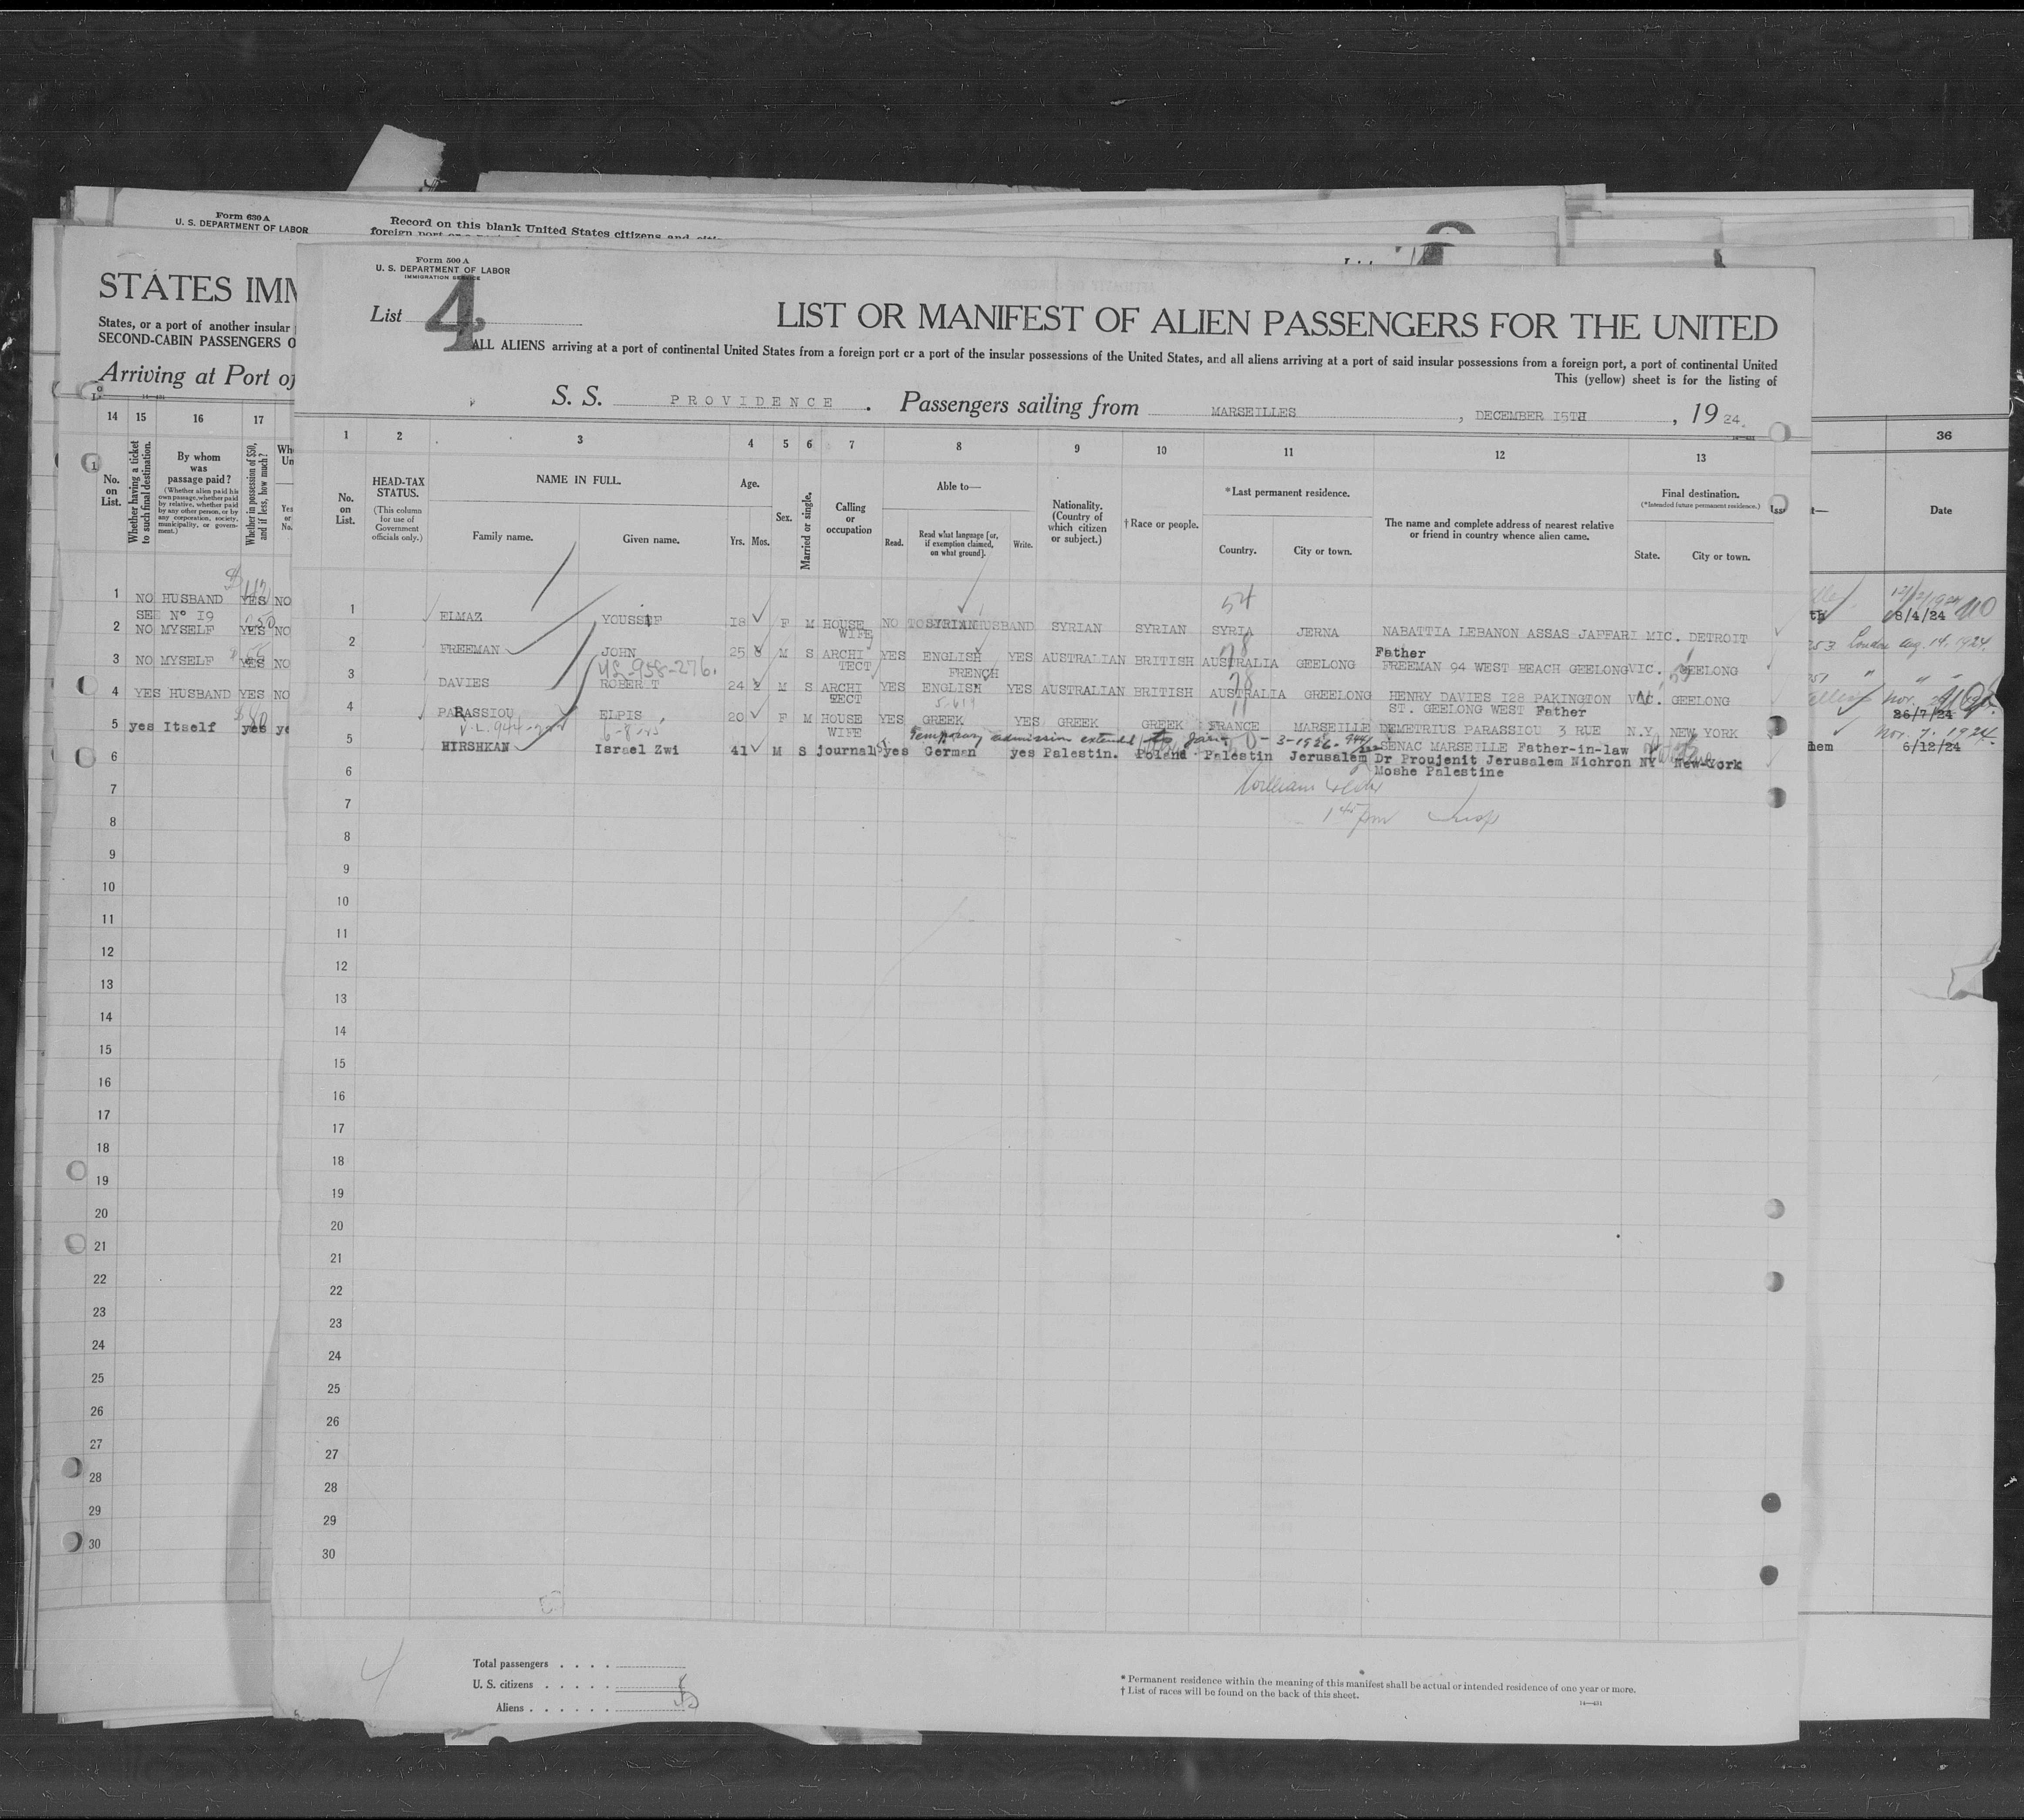 Form 630 A
U. S. DEPARTMENT OF LABOR
Record on this blank United States citizens and
STATES IMM
States, or a port of another insular
SECOND-CABIN PASSENGERS O
Arriving at Port of
14 15 16 17
No. on List.
Whether having a ticket to such final destination.
By whom was passage paid?
(Whether alien paid his own passage, whether paid by relative, whether paid by any other person, or by any corporation, society, municipality, or government.)
Whether in possession of $50, and if less, how much?
1 NO HUSBAND YES NO
SEE N° 19
2 NO MYSELF YES NO
3 NO MYSELF YES NO
4 YES HUSBAND YES NO
5 yes Itself yes ye
6
7
8
9
10
11
12
13
14
15
16
17
18
19
20
21
22
23
24
25
26
27
28
29
30
Form 500 A
U. S. DEPARTMENT OF LABOR
IMMIGRATION SERVICE
List 4
LIST OR MANIFEST OF ALIEN PASSENGERS FOR THE UNITED
ALL ALIENS arriving at a port of continental United States from a foreign port or a port of the insular possessions of the United States, and all aliens arriving at a port of said insular possessions from a foreign port, a port of continental United
This (yellow) sheet is for the listing of
S. S. PROVIDENCE . Passengers sailing from MARSEILLES , DECEMBER 15TH , 1924.
14—431
1 2 3 4 5 6 7 8 9 10 11 12 13
No. on List.
HEAD-TAX STATUS.
(This column for use of Government officials only.)
NAME IN FULL.
Family name. Given name.
Age.
Yrs. Mos.
Sex.
Married or single.
Calling or occupation
Able to—
Read. Read what language [or, if exemption claimed, on what ground]. Write.
Nationality. (Country of which citizen or subject.)
†Race or people.
*Last permanent residence.
Country. City or town.
The name and complete address of nearest relative or friend in country whence alien came.
Final destination.
(*Intended future permanent residence.)
State. City or town.
54
1 ELMAZ YOUSSEF 18 F M HOUSE NO SYRIAN SYRIAN SYRIAN SYRIA JERNA NABATTIA LEBANON ASSAS JAFFARI MIC. DETROIT
WIFE
Father
2 FREEMAN JOHN 25 8 M S ARCHI YES ENGLISH YES AUSTRALIAN BRITISH AUSTRALIA GEELONG FREEMAN 94 WEST BEACH GEELONG VIC. GEELONG
TECT FRENCH
3 DAVIES ROBERT 24 2 M S ARCHI YES ENGLISH YES AUSTRALIAN BRITISH AUSTRALIA GREELONG HENRY DAVIES 128 PAKINGTON VIC. GEELONG
TECT ST. GEELONG WEST Father
4 PARASSIOU ELPIS 20 F M HOUSE YES GREEK YES GREEK GREEK FRANCE MARSEILLE DEMETRIUS PARASSIOU 3 RUE N.Y NEW YORK
WIFE Temporary admission extended to
SENAC MARSEILLE Father-in-law
5 HIRSHKAN Israel Zwi 41 M S journal yes German yes Palestin. Poland Palestin Jerusalem Dr Proujenit Jerusalem Nichron NY New-York
Moshe Palestine
6
7
8
9
10
11
12
13
14
15
16
17
18
19
20
21
22
23
24
25
26
27
28
29
30
4
Total passengers
U. S. citizens
Aliens
* Permanent residence within the meaning of this manifest shall be actual or intended residence of one year or more.
† List of races will be found on the back of this sheet.
14—431
36
Date
12/12/1924
18/4/24
London Aug. 14. 1924.
26/7/24
Nov. 7. 1924.
6/12/24